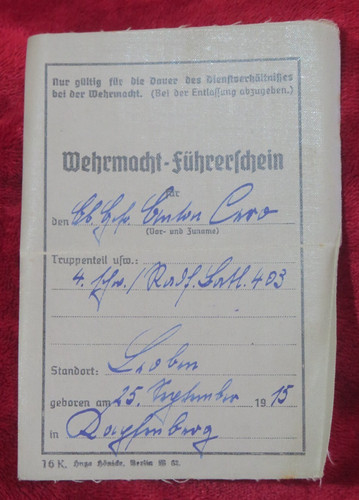 Nur gültig für die Dauer des Dienstverhältnisses
bei der Wehrmacht. (Bei der Entlassung abzugeben.)
Wehrmacht-Führerschein
für
den Ob. Gfr. Anton
(Vor- und Zuname)
Truppenteil usw.:
4. schw./Radf. Batl. 403
Standort: Leoben
geboren am 25. September 1915
in Kapfenberg
16 K. Hugo Berlin W 62.